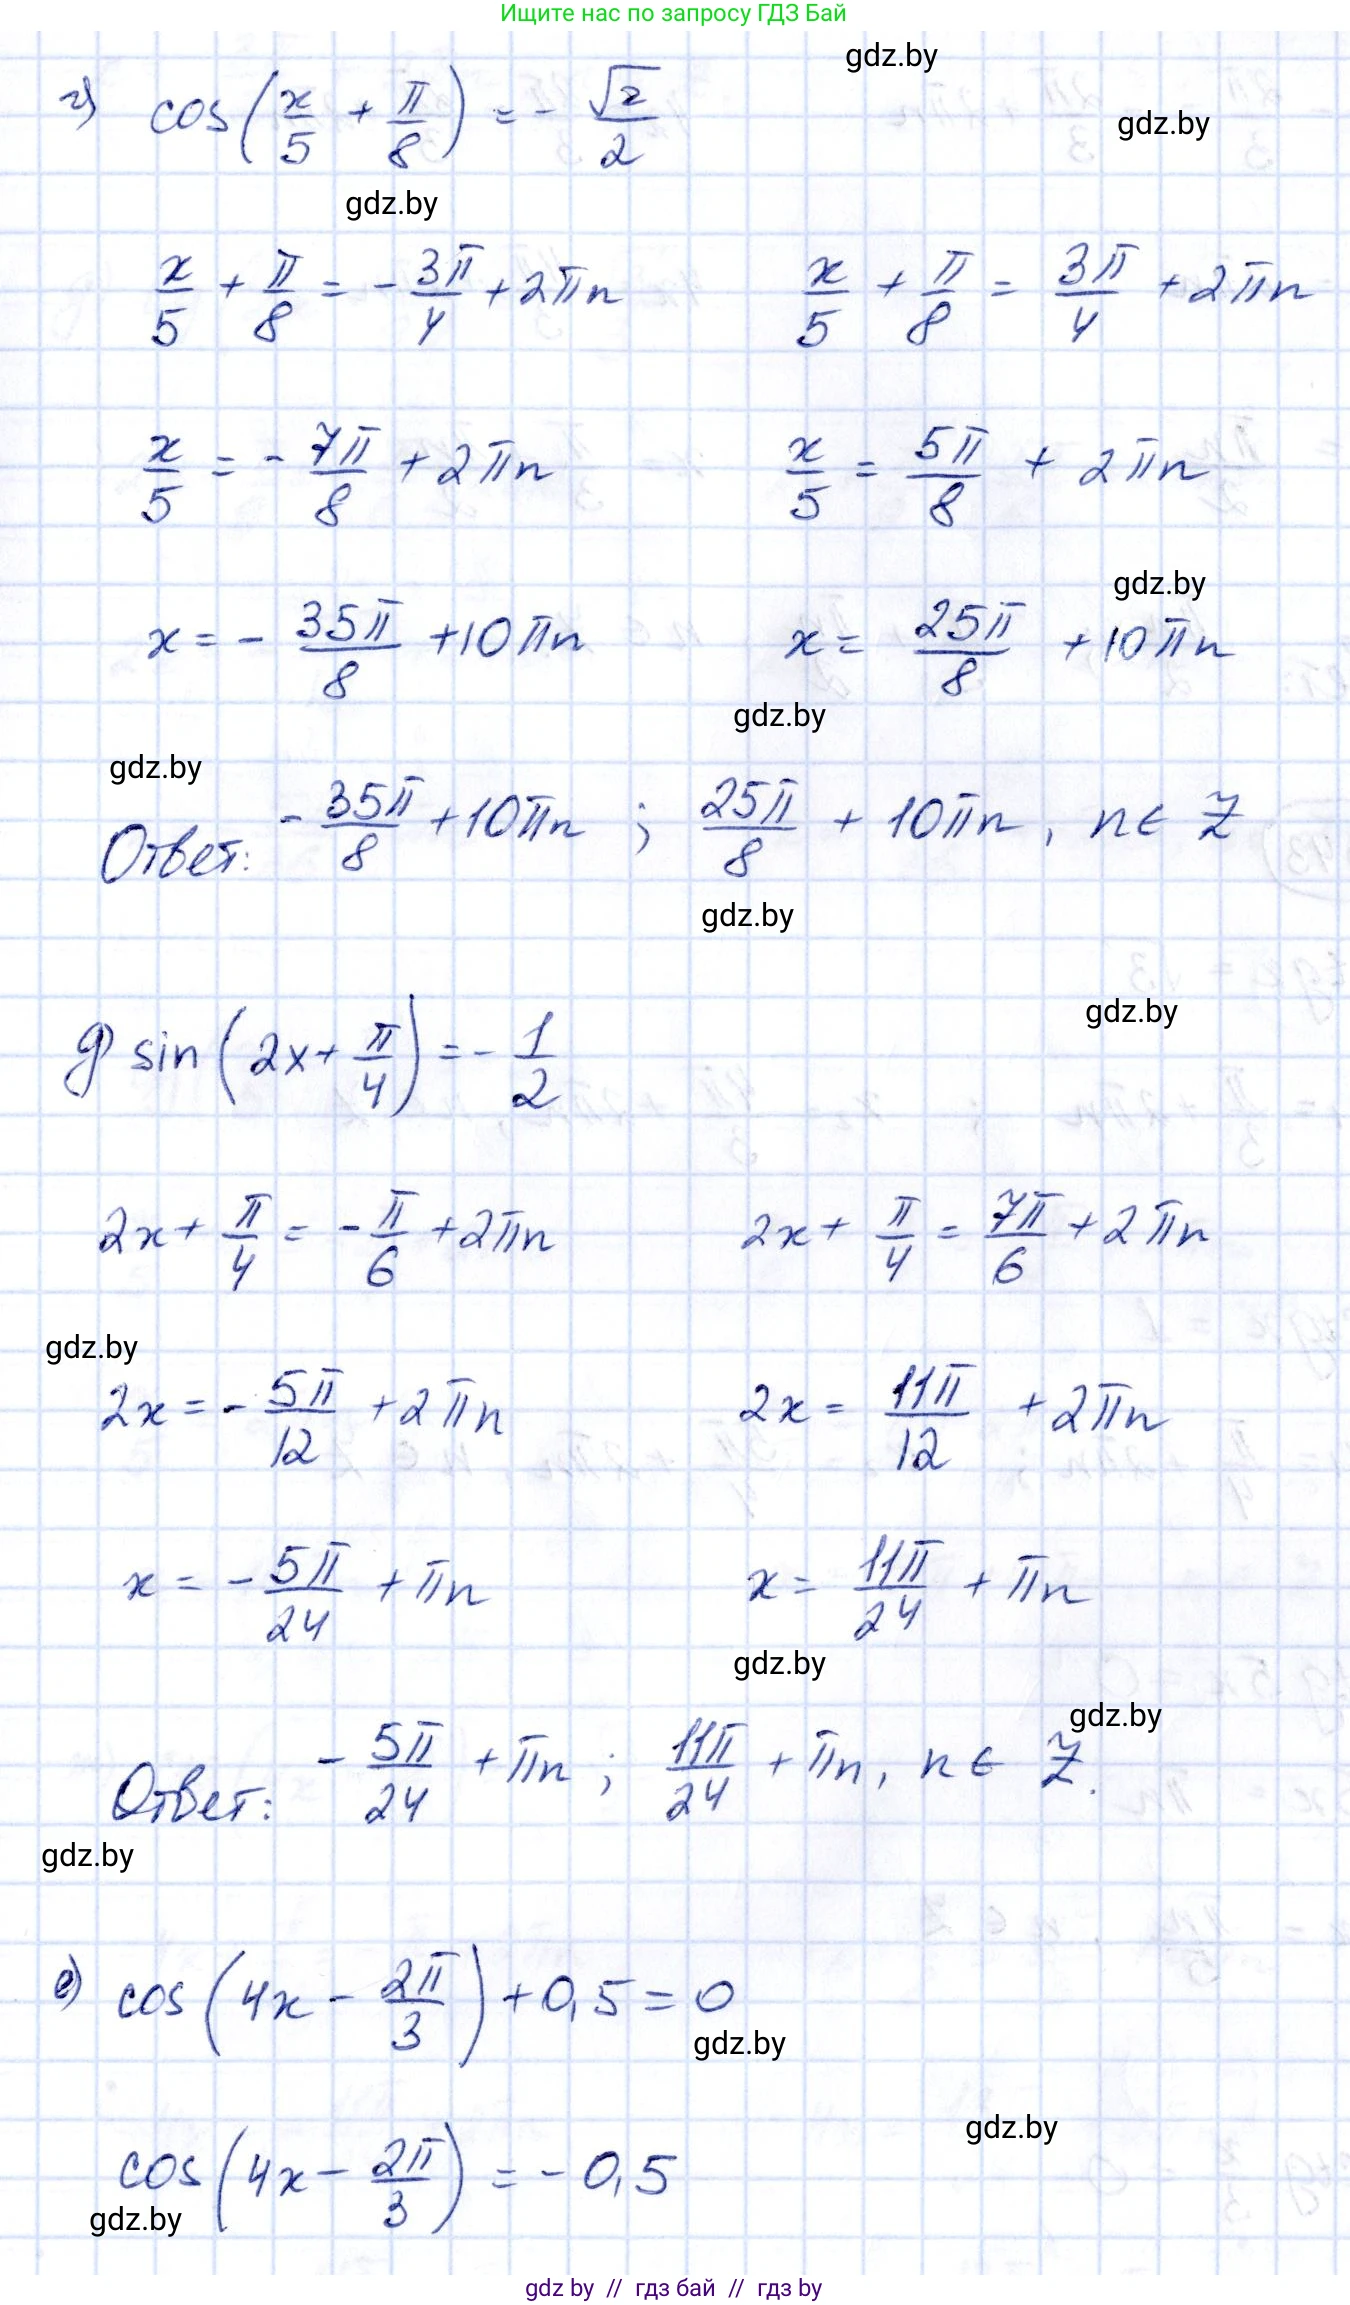 Ищите нас по запросу ГДЗ Бай
gdz.by
г) cos(x/5 + π/8) = - √2/2
gdz.by
gdz.by
x/5 + π/8 = - 3π/4 + 2πn    x/5 + π/8 = 3π/4 + 2πn
x/5 = - 7π/8 + 2πn    x/5 = 5π/8 + 2πn
gdz.by
x = - 35π/8 + 10πn    x = 25π/8 + 10πn
gdz.by
gdz.by
Ответ: - 35π/8 + 10πn ; 25π/8 + 10πn, n ∈ Z
gdz.by
gdz.by
д) sin(2x + π/4) = - 1/2
2x + π/4 = - π/6 + 2πn    2x + π/4 = 7π/6 + 2πn
gdz.by
2x = - 5π/12 + 2πn    2x = 11π/12 + 2πn
x = - 5π/24 + πn    x = 11π/24 + πn
gdz.by
gdz.by
Ответ: - 5π/24 + πn ; 11π/24 + πn, n ∈ Z.
gdz.by
е) cos(4x - 2π/3) + 0,5 = 0
gdz.by
gdz.by
cos(4x - 2π/3) = - 0,5
gdz.by
gdz by // гдз бай // гдз by